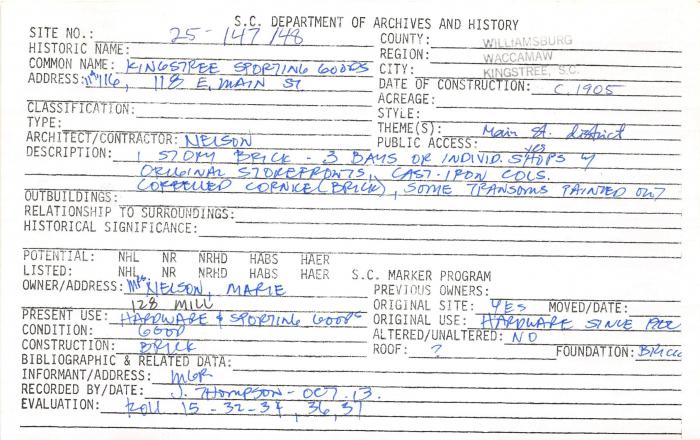 S.C. DEPARTMENT OF ARCHIVES AND HISTORY
SITE NO.: 25-147/48
COUNTY: WILLIAMSBURG
HISTORIC NAME:
REGION: WACCAMAW
COMMON NAME: KINGSTREE SPORTING GOODS
CITY: KINGSTREE, S.C.
ADDRESS: 116, 118 E. MAIN ST
DATE OF CONSTRUCTION: C. 1905
ACREAGE:
CLASSIFICATION:
STYLE:
TYPE:
THEME(S): Main St. district
ARCHITECT/CONTRACTOR: NELSON
PUBLIC ACCESS: yes
DESCRIPTION: 1 STORY BRICK - 3 BAYS OR INDIVID. SHOPS W/
ORIGINAL STOREFRONTS, CAST-IRON COLS.
CORBELLED CORNICE (BRICK), SOME TRANSOMS PAINTED OUT
OUTBUILDINGS:
RELATIONSHIP TO SURROUNDINGS:
HISTORICAL SIGNIFICANCE:
POTENTIAL: NHL NR NRHD HABS HAER
LISTED: NHL NR NRHD HABS HAER S.C. MARKER PROGRAM
OWNER/ADDRESS: Mrs. NELSON, MARIE
PREVIOUS OWNERS:
128 MILL
ORIGINAL SITE: YES MOVED/DATE:
PRESENT USE: HARDWARE & SPORTING GOODS
ORIGINAL USE: HARDWARE SINCE
CONDITION: GOOD
ALTERED/UNALTERED: NO
CONSTRUCTION: BRICK
ROOF: ? FOUNDATION: BRICK
BIBLIOGRAPHIC & RELATED DATA:
INFORMANT/ADDRESS: MGR
RECORDED BY/DATE: J. THOMPSON - OCT. 13.
EVALUATION: ROLL 15 - 32-34, 36, 37